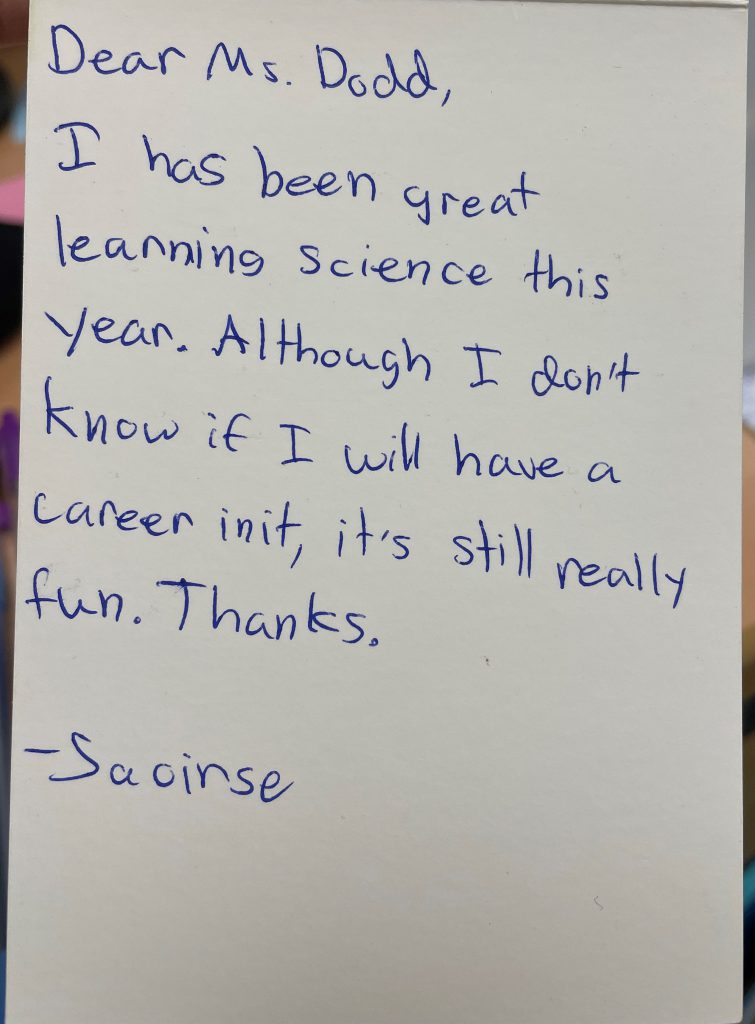 Dear Ms. Dodd,
I has been great
learning science this
year. Although I don't
know if I will have a
career init, it's still really
fun. Thanks.
-Saoirse